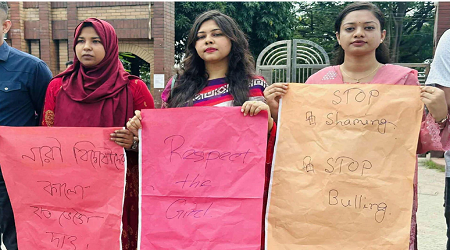 নারী বিদ্বেষীদের
কালো
হাত ভেঙে
দাও
Respect
the
Girl
STOP
Shaming.
STOP
Bulling.